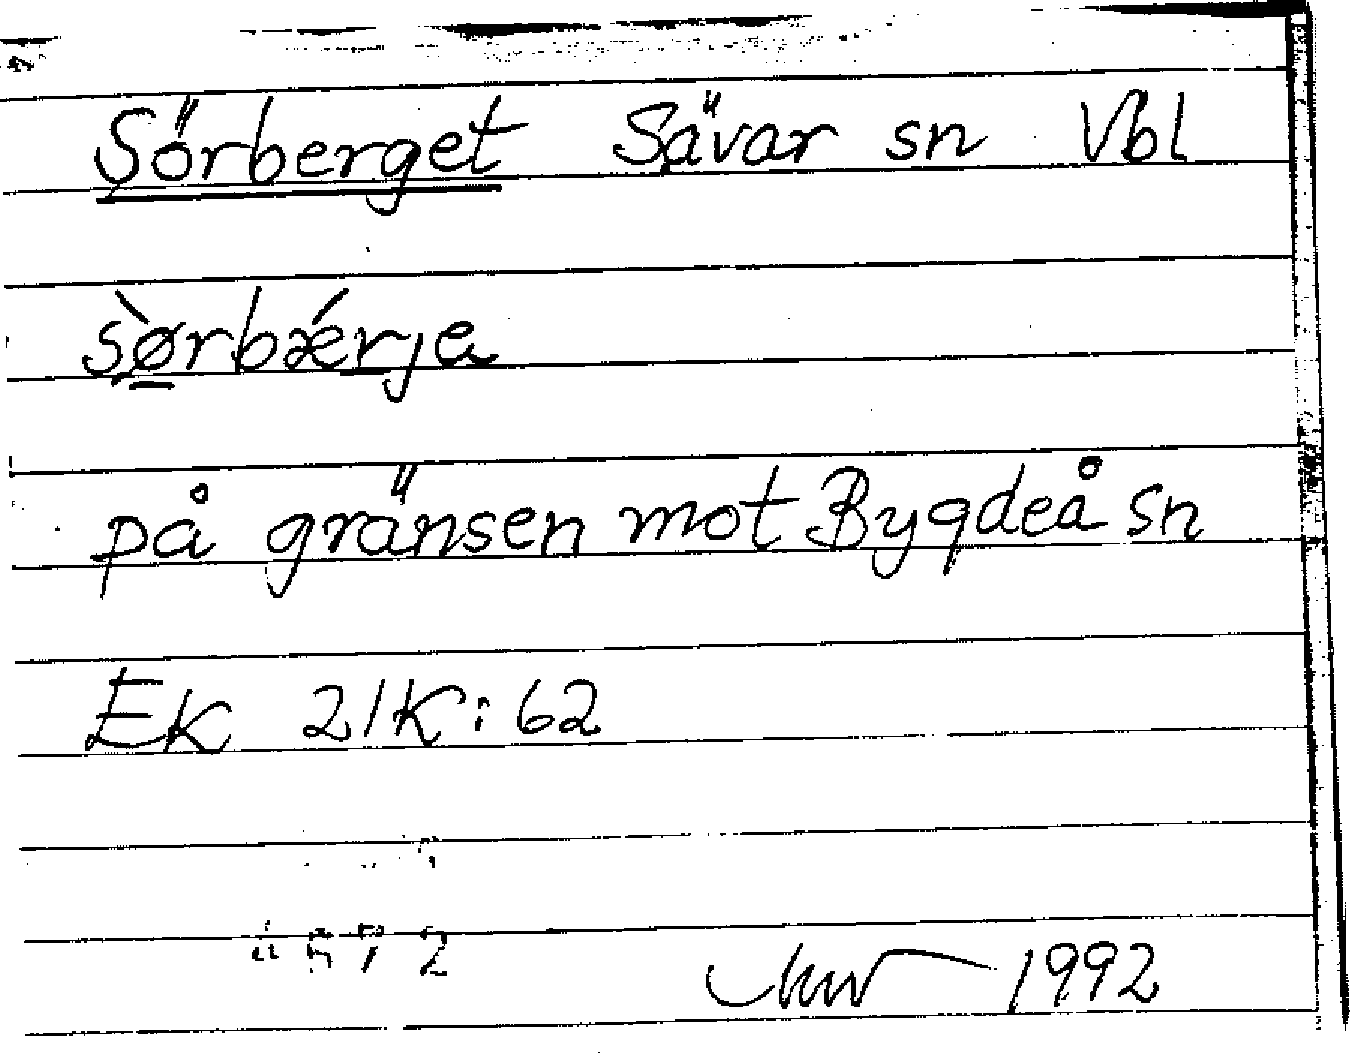 Sörberget Sävar sn Vbl
sø̀rbǽrja
på gränsen mot Bygdeå sn
EK 21K:62
1992